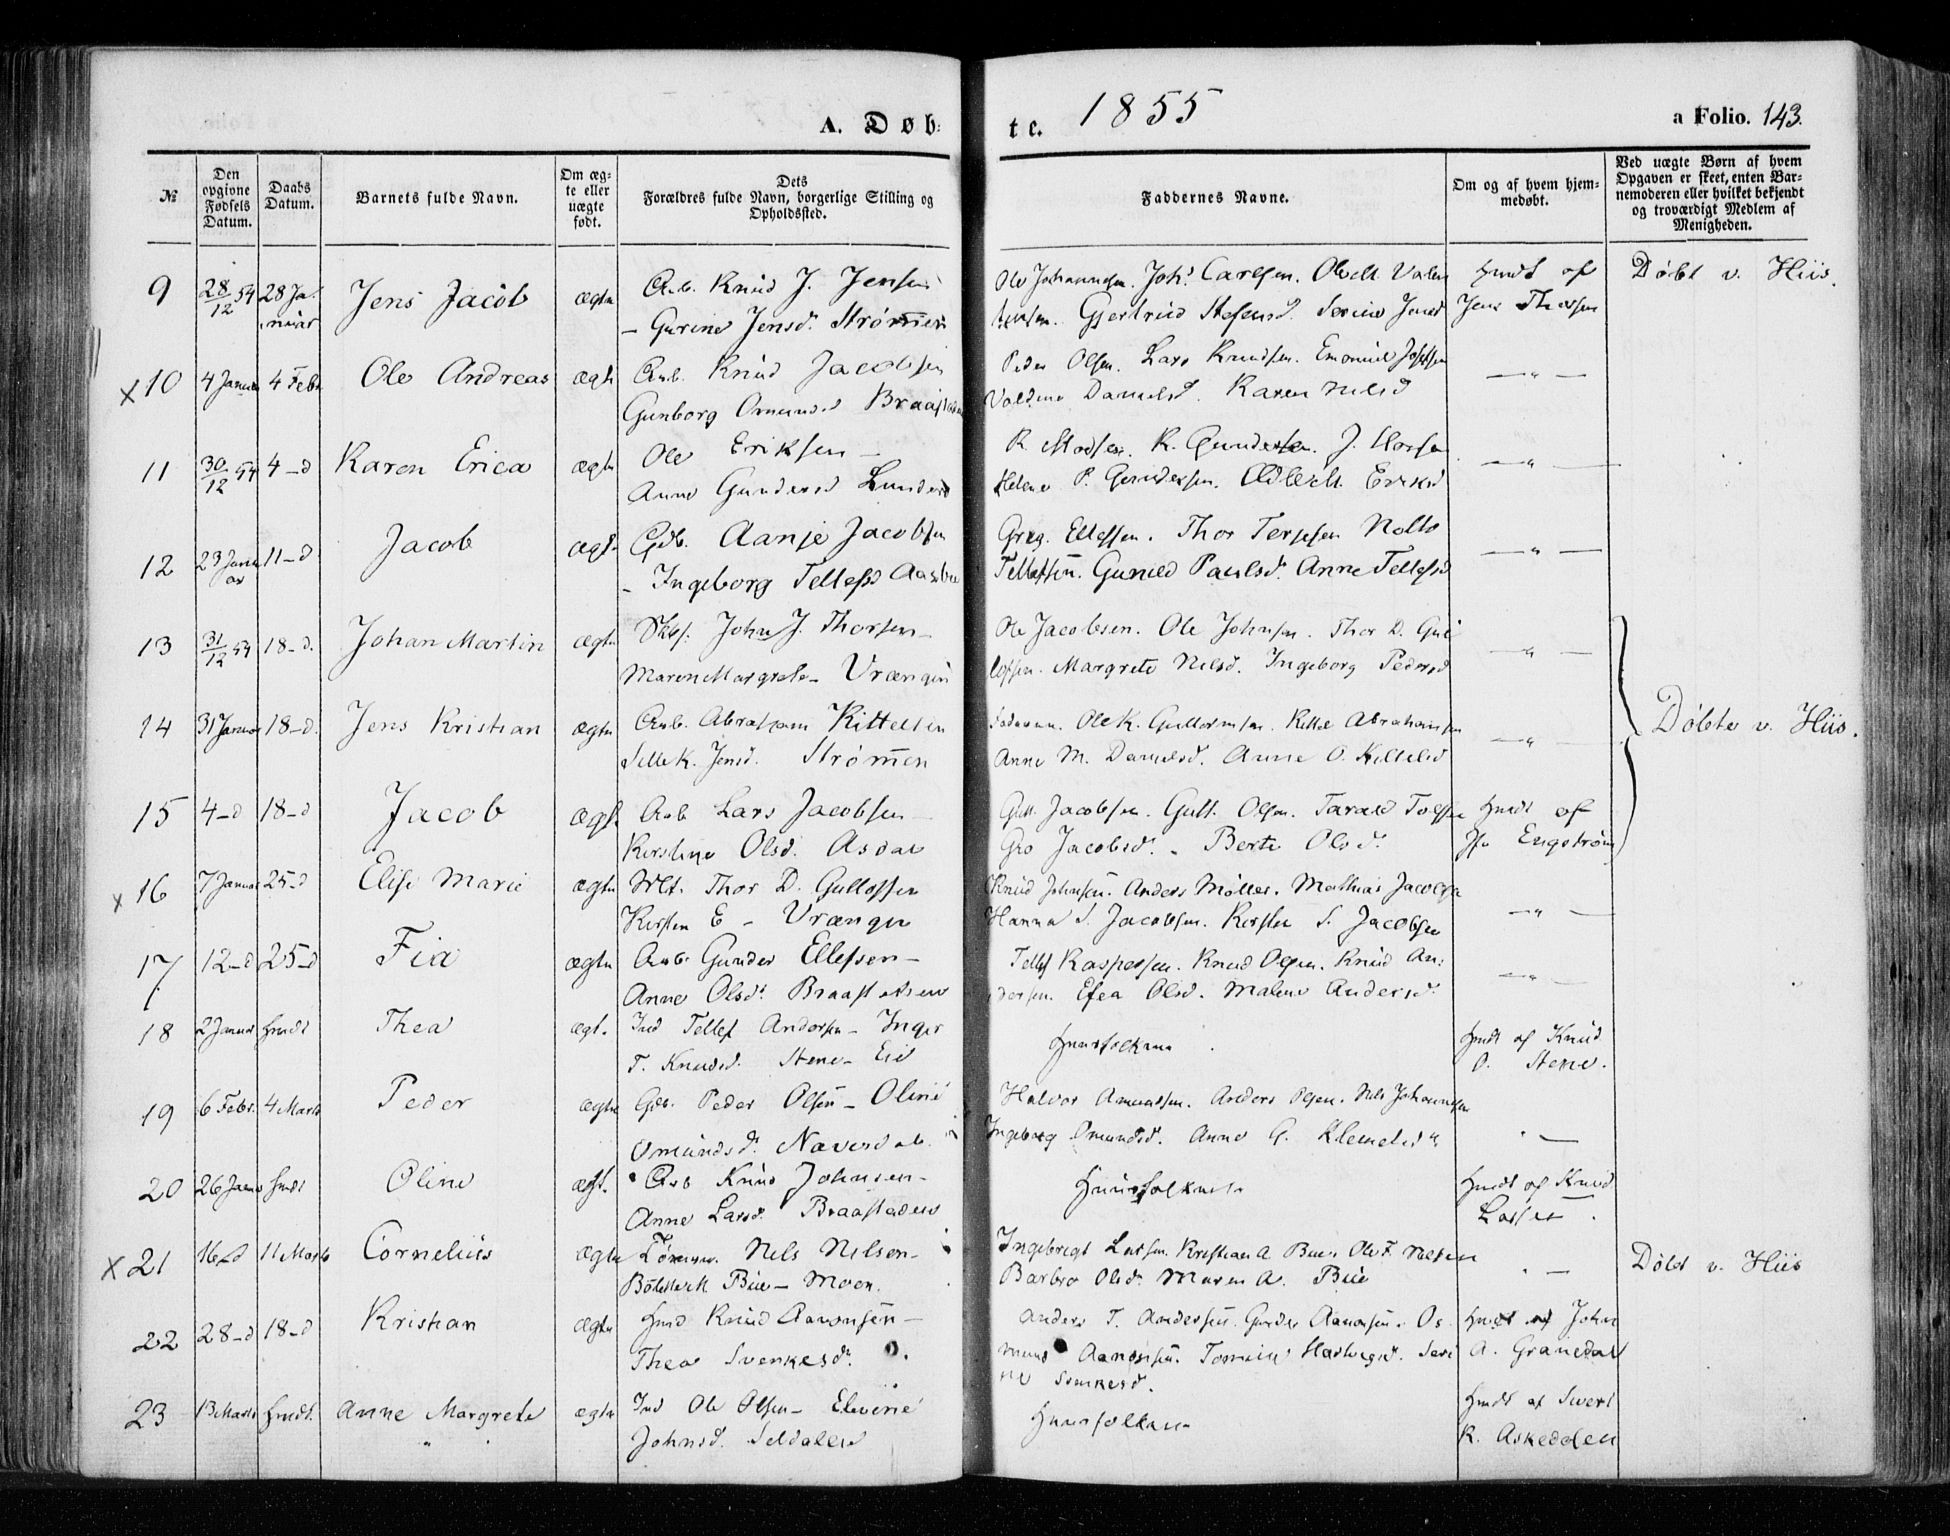 A. Døb:
te. 1855
a Folio. 143.
№
Den opgivne Fødsels Datum.
Daabs Datum.
Barnets fulde Navn.
Om ægte eller uægte født.
Dets Forældres fulde Navn, borgerlige Stilling og Opholdssted.
Faddernes Navne.
Om og af hvem hjemmedøbt.
Ved uægte Børn af hvem Opgaven er skeet, enten Barnemoderen eller hvilket bekjendt og troværdigt Medlem af Menigheden.
9 28/12 54 28 Januar Jens Jacob ægte Arb. Knud J. Jensen
- Gurine Jensd. Strømmen
Ole Johannesen. Joh. Carlsen. Gjertrud Stefensd. Serine Jensd
Hmdt af Jens Thorsen
Døbt v. Hiis.
x 10 4 Januar 4 Febr Ole Andreas ægte Arb. Knud Jacobsen
Gunborg Omundsd Braastaden
Peder Olsen. Lars Knudsen. Emanuel Josefsen
Danielsd. Karen Nilsd
- " -
11 30/12 54 4 - d Karen Erica ægte Ole Eriksen -
Anne Gundersd Lunden
R. Madsen. K. Gundersen. J.
Helene P. Gundersen. Eriksd
- " -
12 23 Januar 11 - d Jacob ægte Gdb. Aanje Jacobsen
- Ingeborg Tellefsd
Greg. Ellefsen. Thor Terjesen
Tellefsen. Gunild Paulsd. Anne Tellefsd
- " -
13 31/12 54 18 - d. Johan Martin ægte John J. Thorsen -
Maren Margrete - Vrængen
Ole Jacobsen. Ole Johnsen. Thor D. Gullofsen. Margrete Nilsd. Ingeborg Pedersd
- " -
14 31 Januar 18 - d. Jens Kristian ægte Arb. Abraham Kittelsen
Sille K. Jensd. Strømmen
Faderen. Ole K. Guttormsen. Kittel Abrahamsen
Anne M. Danielsd. Anne O. Kittelsd
- " -
Døbte v. Hiis.
15 4 - d 18 - d Jacob ægte Arb Lars Jacobsen -
Kirstine Olsd. Asdal
Gutt. Jacobsen. Gutt. Olsen. Tarald
Gro Jacobsd. - Berte Olsd.
Hmdt af Engstrøm
x 16 7 Januar 25 - d Elise Marie ægte Thor D. Gullofsen
Kirsten E - Vrængen
Knud Johnsen. Anders Møller. Mathias Jacobsen
Hanna S. Jacobsen. Kirsten S. Jacobsen
- " -
17 12 - d 25 - d Fia ægte Arb. Gunder Ellefsen -
Anne Olsd. Braastaden
Tellef Kaspersen. Knud Olsen. Knud Andersen. Efea Olsd. Malene Andersd.
- " -
18 2 Januar Hmdt Thea ægt. Ind Tellef Andersen - Inger
T. Knudsd. Stene - Eid
Huusfolkene
Hmdt af Knud
O. Stene.
19 6 Febr. 4 Marts Peder ægte Gdb. Peder Olsen - Oline
Omundsd. Navesdal.
Halvor Amundsen. Anders Olsen. Nils Johannesen
Ingeborg Omundsd. Anne G. Klemetsd
" -
20 26 Januar Hmdt Oline ægt. Arb Knud Johnsen -
Anne Larsd. Braastaden
Huusfolkene
Hmdt af Knud
Larsen.
x 21 16 - d 11 Marts Cornelius ægte Tømm. Nils Nilsen -
Bue - Moen.
Ingebregt Larsen. Kristian A Bue. Ole F. Nilsen
Barbro Olsd. Maren A. Bue
" -
Døbt v. Hiis
22 28 - d 18 - d Kristian ægte Hmd Knud Aanonsen -
Thea Svenkesd.
Anders T. Andersen. Gunder Aanonsen. Osmund Aanonsen. Tomine Serine Svenkesd.
Hmdt af John
A. Granedal
23 13 Marts Hmdt. Anne Margrete ægte Ind Ole Olsen - Elevine
Johnsd. Seldalen
Huusfolkene
Hmdt af Sivert
K. Askedalen